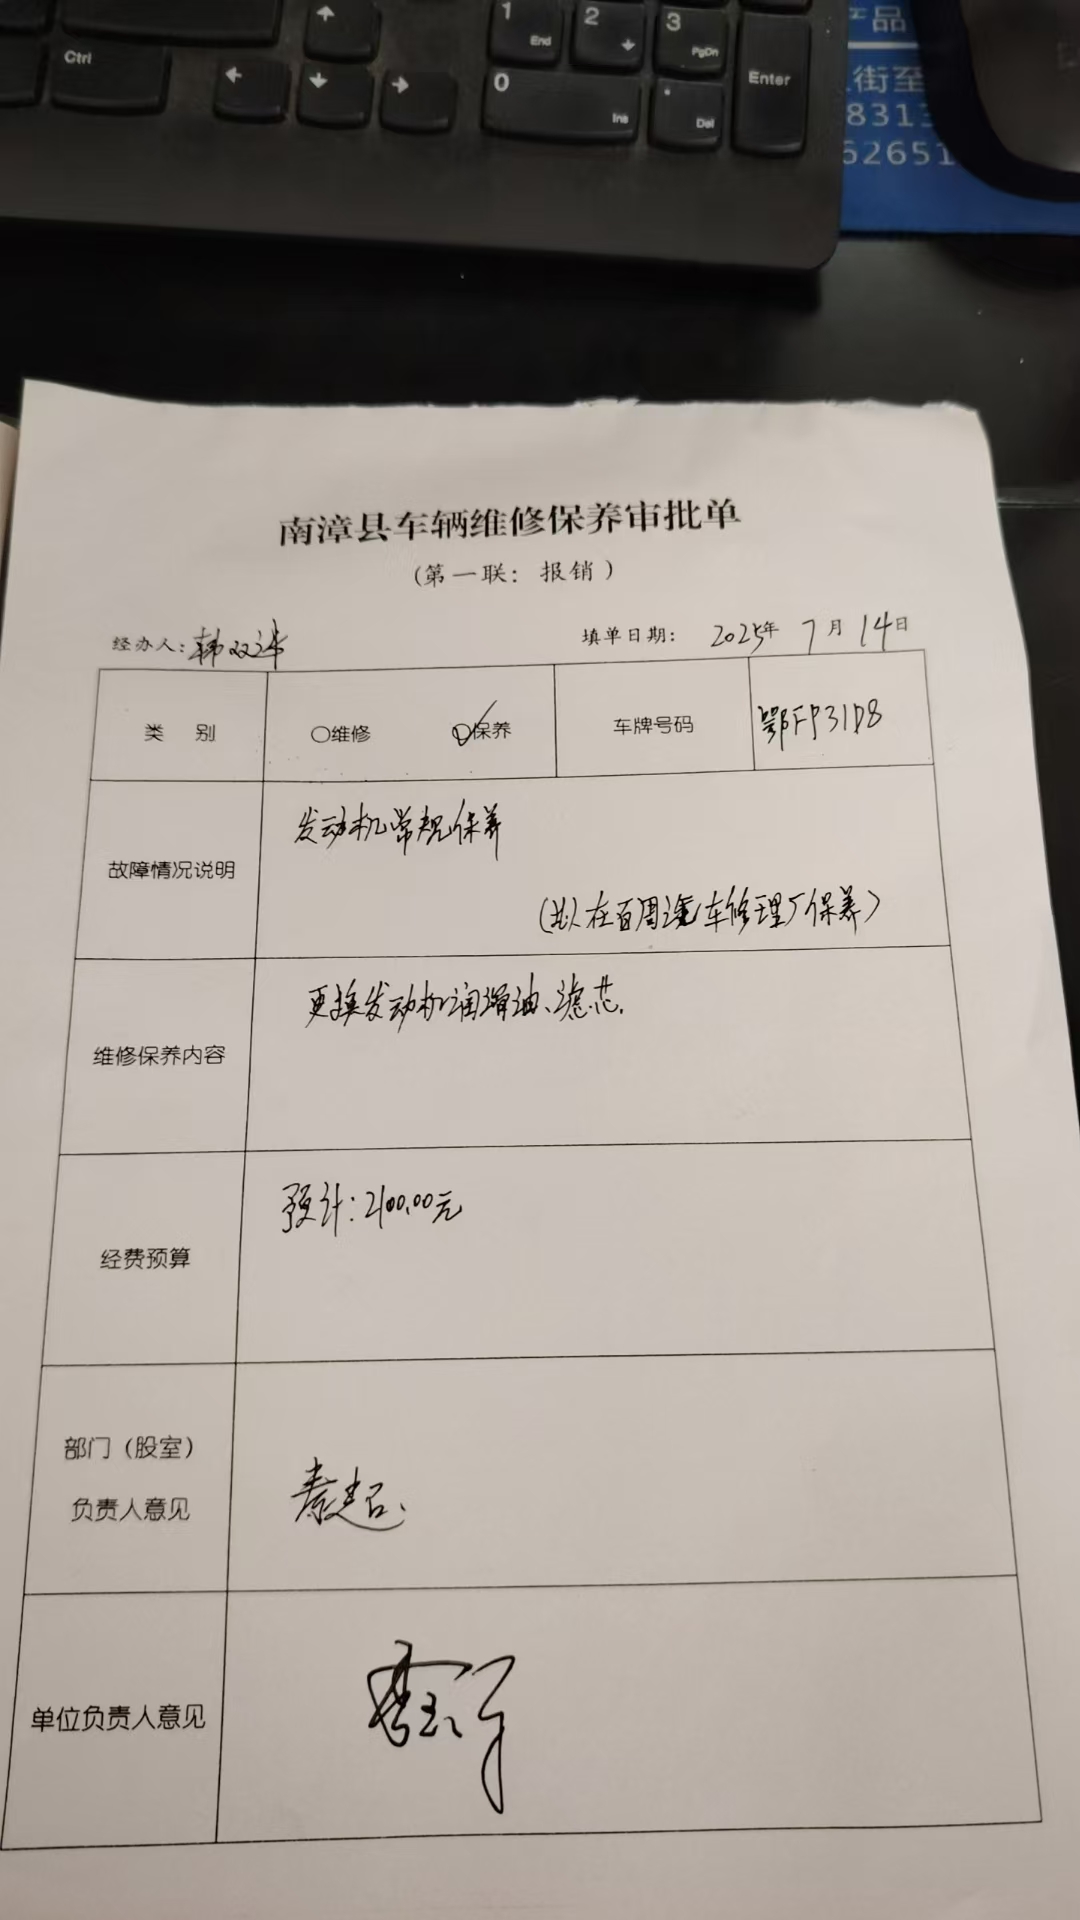 Ctrl
1 End
2
3 PgDn
0 Ins
Del
Enter
产品
街至
8313
62651
南漳县车辆维修保养审批单
（第一联：报销）
经办人： 填单日期： 2025年 7月 14日
类 别 ○维修 ○保养 车牌号码 鄂FP31D8
故障情况说明 发动机常规保养
在百周汽车修理厂保养）
维修保养内容 更换发动机润滑油、滤芯.
经费预算 预计：2100.00元
部门（股室）
负责人意见
单位负责人意见